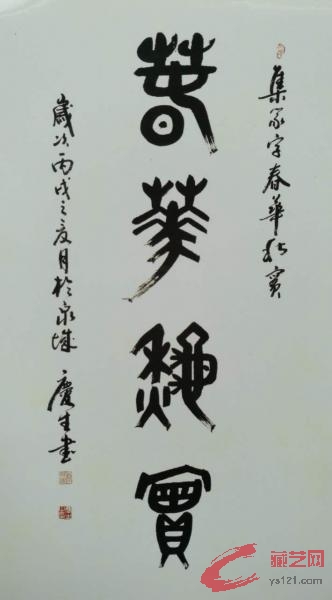 集冢字春華秋實
春華秋實
歲次丙戌之夏月於泉城 慶生書
藏艺网
ys121.com